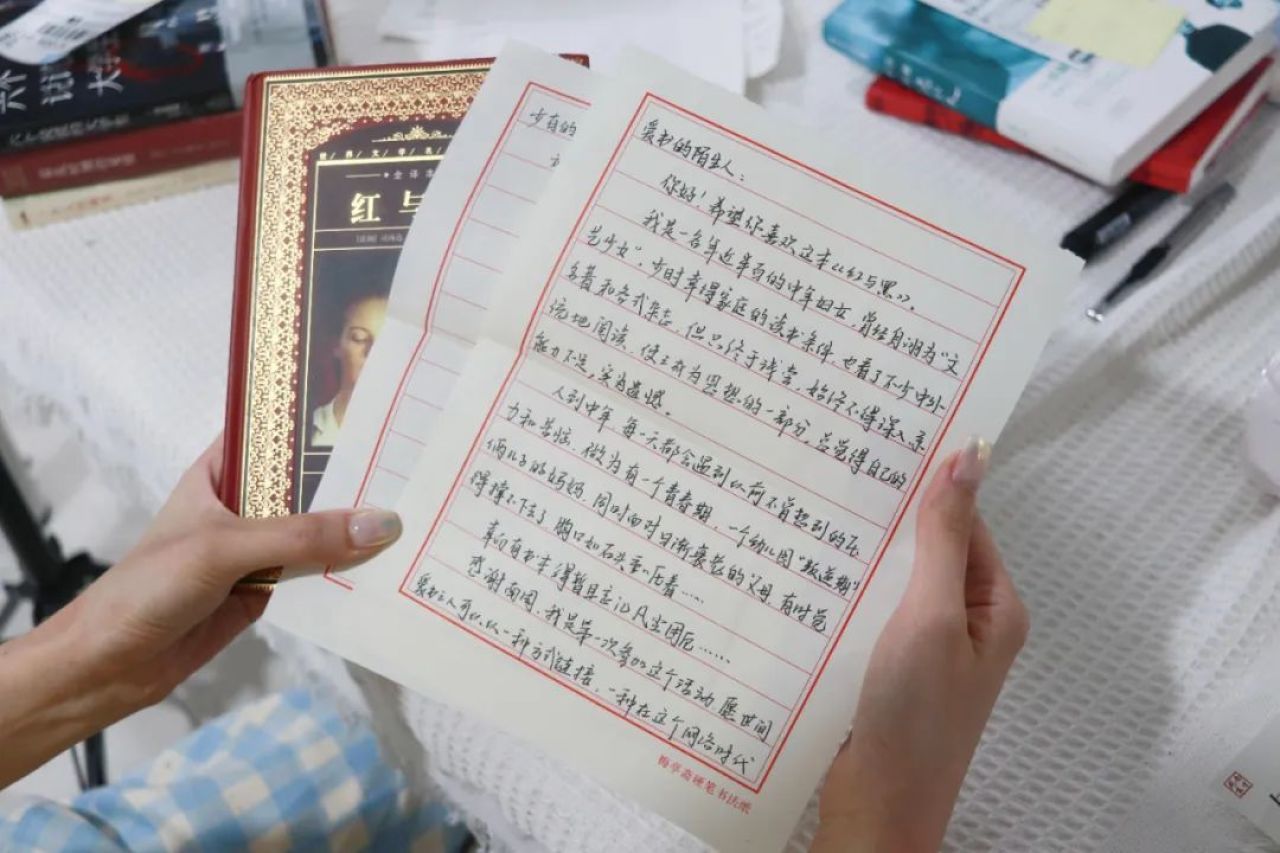 红与
全译本
少有的
爱书的陌生人：
你好！希望你喜欢这本《红与黑》。
我是一名年近半百的中年妇女，曾经自诩为“文
艺少女”，少时幸得家庭的读书条件，也看了不少中外
名著和各式杂志，但只终于浅尝，始终不得深入、系
统地阅读，使之成为思想的一部分，总觉得自己的
能力不足，实为遗憾。
人到中年，每一天都会遇到以前不曾想到的压
力和苦恼，做为有一个青春期，一个幼儿园“叛逆期”
俩儿子的妈妈，同时面对日渐衰老的父母，有时觉
得撑不下去了，胸口如石头重压着……
幸而有书本得暂且忘记风尘困厄……
感谢南周，我是第一次参加这个活动，愿世间
爱书之人可以以一种方式链接，一种在这个网络时代
梅亭斋硬笔书法纸